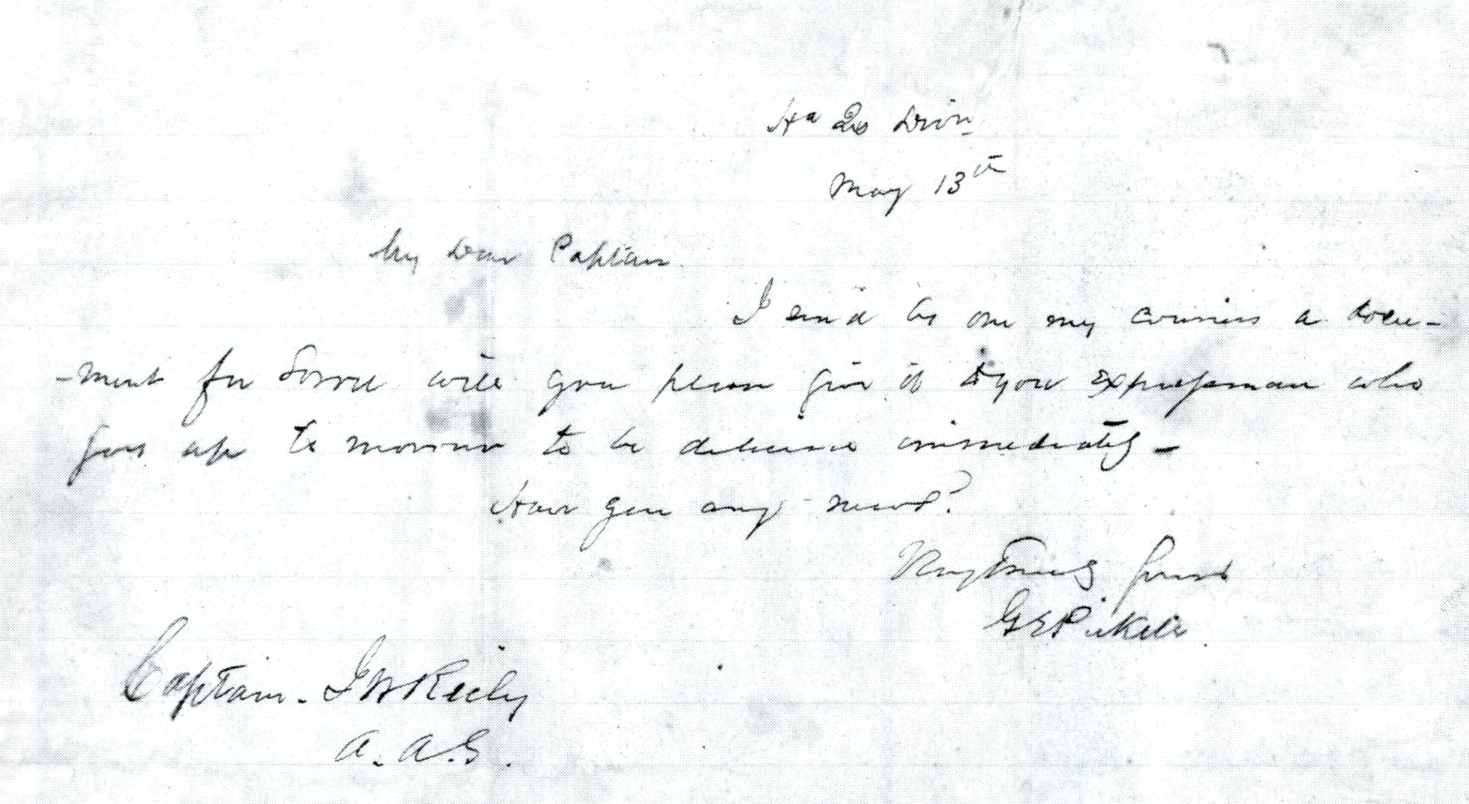 Hd Qrs Divn
May 13th
My Dear Captain
I send by one my couriers a docu-
-ment for Sorrel will you please give it to your expressman who
goes up to morrow to be delivered immediately -
Have you any news?
Very Truly yours
G E Pickett
Captain. J W Riely
A. A. G.